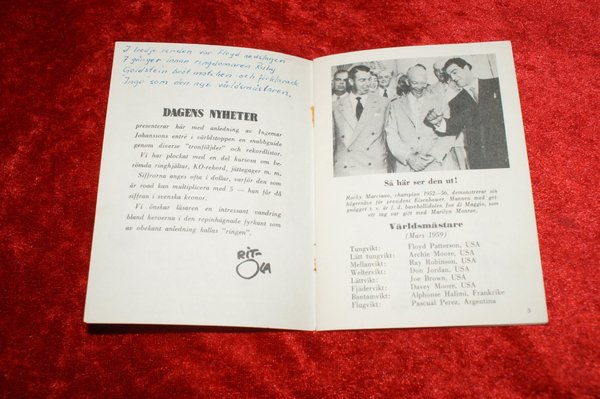 I tredje ronden var Floyd nedslagen
7 gånger innan ringdomaren Ruby
Goldstein bröt matchen och förklarade
Ingo som den nye världsmästaren.
DAGENS NYHETER
presenterar här med anledning av Ingemar
Johanssons entré i världstoppen en snabbguide
genom diverse "tronföljder" och rekordlistor.
Vi har plockat med en del kuriosa om be-
römda ringhjältar, KO-rekord, jättegager m. m.
Siffrorna anges ofta i dollar, varför den som
är road kan multiplicera med 5 — han får då
siffran i svenska kronor.
Vi önskar läsaren en intressant vandring
bland heroerna i den repinhägnade fyrkant som
av obekant anledning kallas "ringen".
RIT-
OLA
Så här ser den ut!
Rocky Marciano, champion 1952—56, demonstrerar sin
högernäve för president Eisenhower. Mannen med get-
ragget t. v. är f. d. baseballidolen Joe di Maggio, som
ett tag var gift med Marilyn Monroe.
Världsmästare
(Mars 1959)
Tungvikt: Floyd Patterson, USA
Lätt tungvikt: Archie Moore, USA
Mellanvikt: Ray Robinson, USA
Weltervikt: Don Jordan, USA
Lättvikt: Joe Brown, USA
Fjädervikt: Davey Moore, USA
Bantamvikt: Alphonse Halimi, Frankrike
Flugvikt: Pascual Perez, Argentina
3